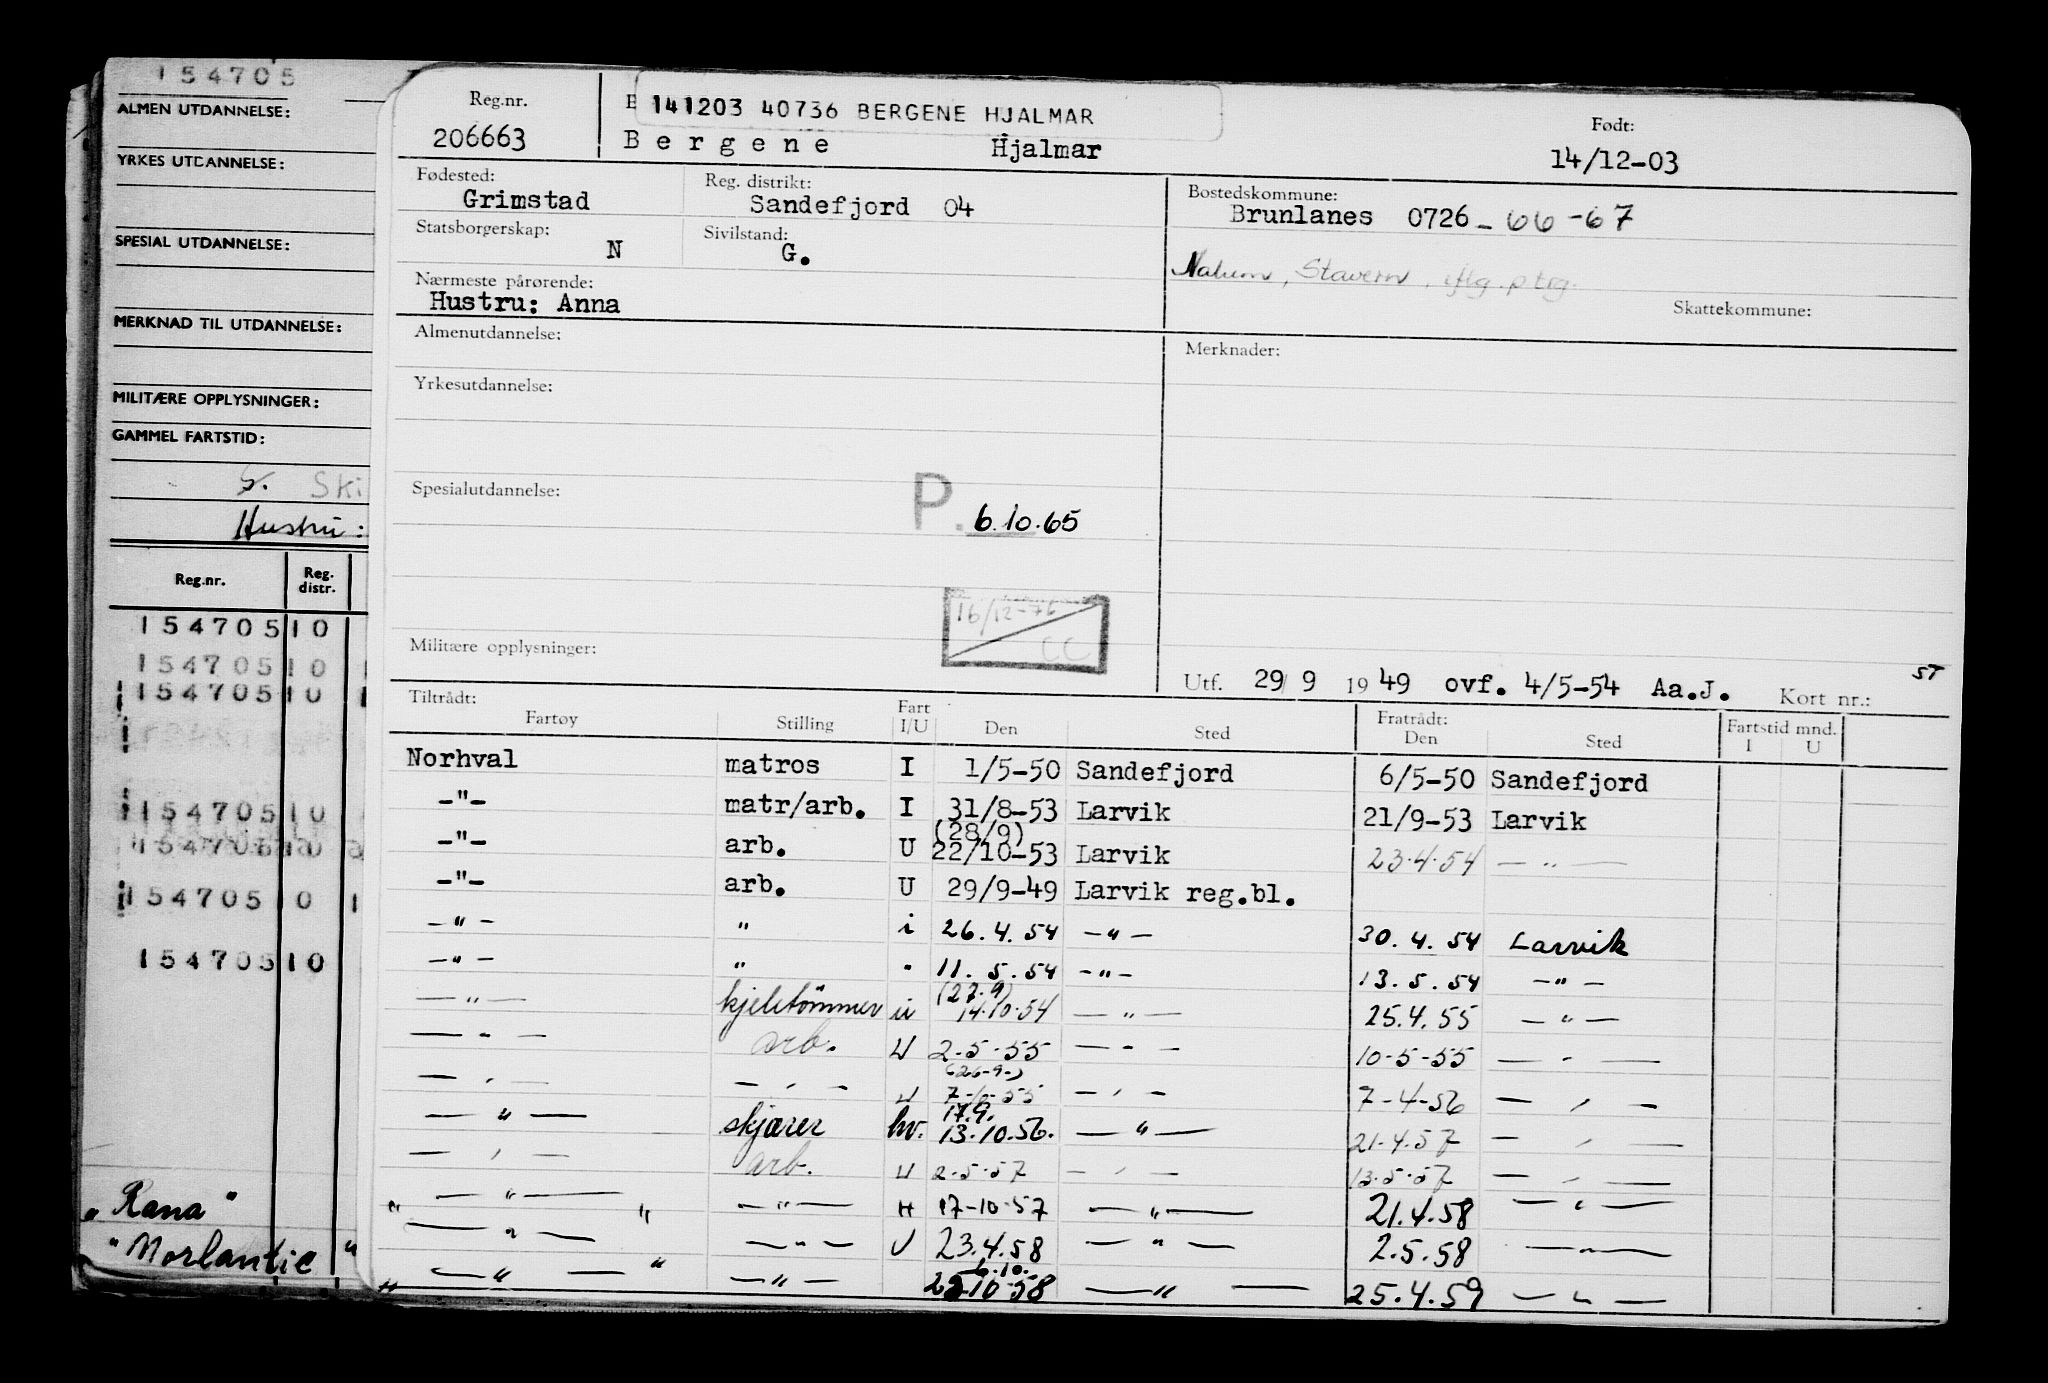 154705
ALMEN UTDANNELSE:
YRKES UTDANNELSE:
SPESIAL UTDANNELSE:
MERKNAD TIL UTDANNELSE:
MILITÆRE OPPLYSNINGER:
GAMMEL FARTSTID:
Ski
Hustru:
Reg.nr. Reg. distr.
154705 10
154705 10
154705 10
154705 10
154705 10
154705 10
154705 10
"Rana"
"Norlantic"
Reg.nr. 141203 40736 BERGENE HJALMAR Født:
206663 Bergene Hjalmar 14/12-03
Fødested: Reg. distrikt: Bostedskommune:
Grimstad Sandefjord 04 Brunlanes 0726 - 66-67
Statsborgerskap: Sivilstand:
N G.
Nalum, Stavern, iflg. ptrg.
Nærmeste pårørende: Skattekommune:
Hustru: Anna
Almenutdannelse: Merknader:
Yrkesutdannelse:
Spesialutdannelse: P. 6.10.65
16/12-76
CC
Militære opplysninger:
ST
Utf. 29/ 9 19 49 ovf. 4/5-54 Aa.J. Kort nr.:
Tiltrådt: Fart Fratrådt: Fartstid mnd.
Fartøy Stilling I/U Den Sted Den Sted I U
Norhval matros I 1/5-50 Sandefjord 6/5-50 Sandefjord
-"- matr/arb. I 31/8-53 Larvik 21/9-53 Larvik
(28/9)
-"- arb. U 22/10-53 Larvik 23.4.54 -"-
-"- arb. U 29/9-49 Larvik reg.bl.
-"- " i 26.4.54 -"- 30.4.54 Larvik
-"- " " 11.5.54 -"- 13.5.54 -"-
(27.9)
-"- kjeletömmer u 14.10.54 -"- 25.4.55 -"-
-"- arb. U 2-5-55 -"- 10-5-55 -"-
(26-9-)
-"- -"- U 7-10-55 -"- 7-4-56 -"-
17.9.
-"- skjærer hv. 13.10.56. -"- 21.4.57 -"-
-"- arb. U 2-5-57 -"- 13.5.57 -"-
" -"- " -"- H 17-10-57 -"- 21.4.58 -"-
-"- -"- U 23.4.58 -"- 2.5.58 -"-
6.10.
" -"- " -"- 10-58 -"- 25.4.59 -"-